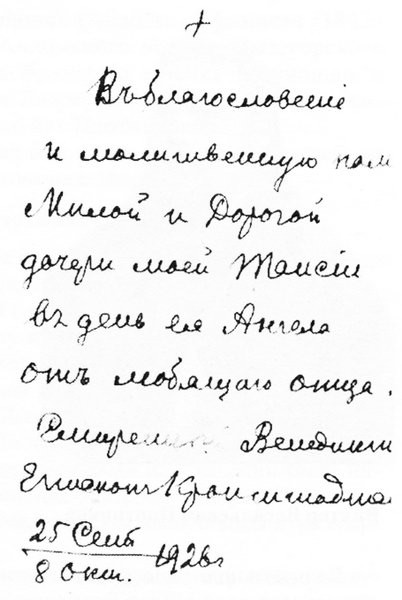 +
Въ благословенiе
и молитвенную пам
Милой и Дорогой
дочери моей Таисiи
въ день ея Ангела
отъ любящаго отца.
Смиренный Венедикт
Епископ Кронштадтс
25 Сент / 8 окт. 1926 г